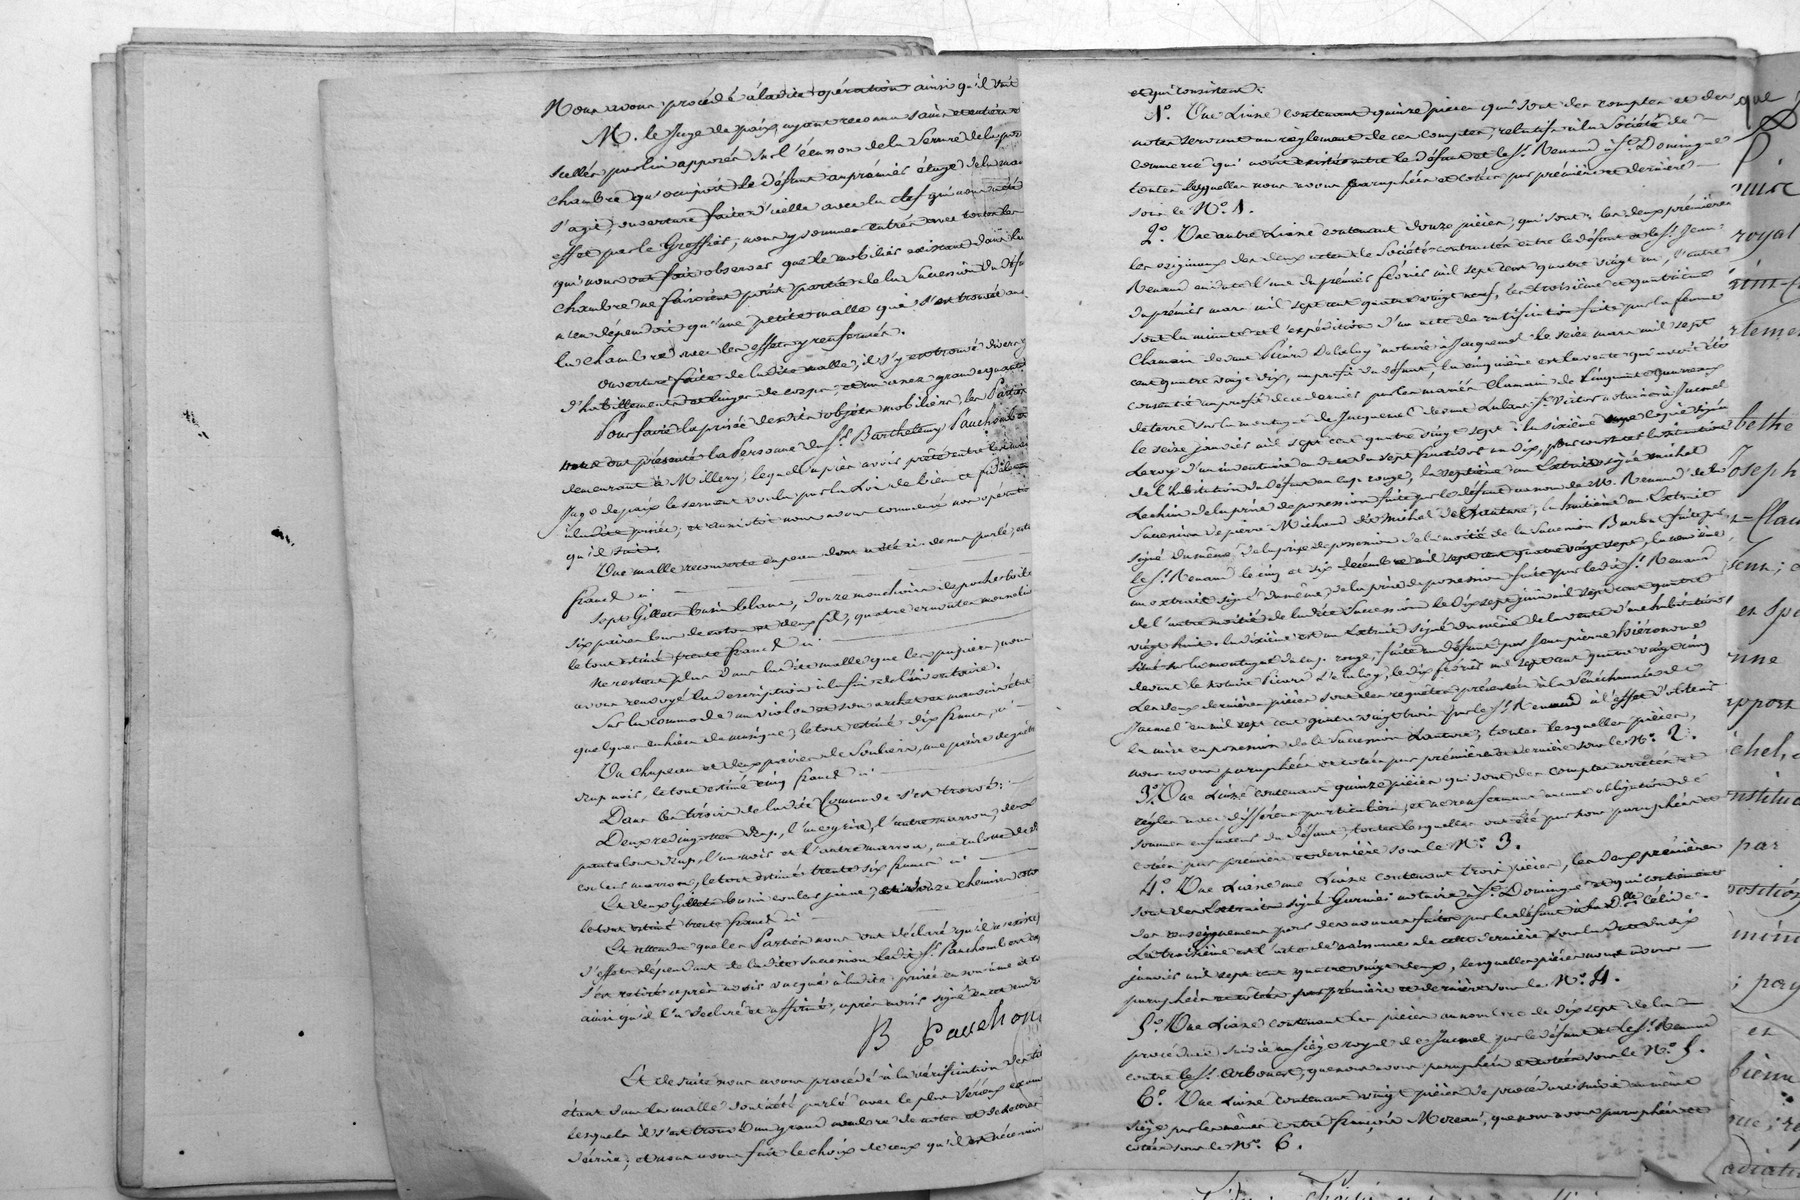 Nous avons procédé à ladite opération ainsi qu'il suit
M. le Juge de paix, ayant reconnu sains et entiers
scellés par lui apposés sur l'écusson de la serrure de la por
chambre qu'occupoit le défunt au premier étage de la mai
s'agit, ouverture faite d'icelle avec la clef qui nous a été
effet par le Greffier, nous y sommes entrés avec toutes les
qui nous ont fait observer que le mobilier existant dans la
chambre ne faisoient point partie de la succession du défu
n'en dépendoit qu'une petite malle qui s'est trouvée
la chambre avec les effets y renfermés.
Ouverture faite de ladite malle, il s'y est trouvé divers
d'habillements et linges de corps, et un assez grande quanti
Pour faire la prisée desdits objets mobiliers, les Parties
nous ont présenté la Personne du Sr. Barthelemy Pauchon
demeurant à Millery, lequel après avoir prêté entre les mains
Juge de paix le serment voulu par la Loi de bien et fidèlem
à ladite prisée, et aussitôt nous avons commencé nos opérati
qu'il suit.
Une malle recouverte en peau dont a été ci-dessus parlé,
francs ci
Sept Gillets basin blanc, douze mouchoirs de poche
six paires bas de coton et deux fil, quatre cravates mousseline
le tout estimé trente francs ci
Ne restant plus dans ladite malle que les papiers, nous
avons renvoyé la description à la fin de l'inventaire.
Sur la commode un violon et son archet en mauvais état
quelques cahiers de musique, le tout estimé dix francs, ci
Un chapeau et deux paires de souliers, une paire de guêtr
drap noir, le tout estimé cinq francs ci
Dans les tiroirs de ladite Commode s'est trouvé:
Deux redingottes drap, l'une grise, l'autre marron, deux
pantalons drap, l'un noir et l'autre marron, une culotte de
couleur marron, le tout estimé trente six francs ci
Et deux Gillets basin couleur jaune, et douze chemises
le tout estimé trente francs ci
Et attendu que les Parties nous ont déclaré qu'il n'existe
d'effets dépendant de ladite succession ledit Sr. Pauchon
s'est retiré après avoir vacqué à ladite prisée en son âme et
ainsi qu'il l'a déclaré et affirmé, après avoir signé
B Pauchon
Et de suite nous avons procédé à la vérification des
étant dans la malle dont a été parlé avec le plus sérieux exam
lesquels il s'est trouvé un grand nombre de notes et de lettres
décrire; et nous avons fait le choix de ceux qu'il est nécessair
et qui consistent:
1º. Une Liasse contenant quinze pièces qui sont des comptes et des
notes servant au règlement de ces comptes, relatifs à la Société de
commerce qui avoit existé entre le défunt et le Sr. Renaud à St. Domingue
toutes lesquelles nous avons paraphées et cotées par première et dernière
sous le Nº. 1.
2º. Une autre Liasse contenant douze pièces, qui sont: les deux premières
les originaux des deux actes de Société contractés entre le défunt et le Sr. Jean
Renaud en date l'une du premier février mil sept cent quatre vingt un, l'autre
du premier mars mil sept cent quatre vingt neuf, les troisième et quatrième
sont la minute et l'expédition d'un acte de ratification faite par la femme
Chamain devant Picard Delaluy notaire à Jacquemel le seize mars mil sept
cent quatre vingt dix, au profit du défunt, la cinquième est la vente qui avoit été
consentie au profit de ce dernier par les mariés Chamain de cinquante quarreaux
de terre sur la montagne de Jacquemel devant St. Victor notaire à Jacmel
le seize janvier mil sept cent quatre vingt sept: la sixième une copie signée
Leroy d'un inventaire en date du sept fructidor an dix, pour constater la situation
de l'habitation du défunt au cap rouge, la septième un Extrait signé michel
Lechin de la prise de possession faite par le défunt au nom de M. Renaud de la
succession de pierre Michaud dit Michel de Lauture, la huitième un Extrait
signé du même de la prise de possession de la moitié de la succession Barba faite par
le Sr. Renaud le cinq et six décembre mil sept cent quatre vingt sept, la neuvième
un extrait signé du même de la prise de possession faite par ledit Sr. Renaud
de l'autre moitié de ladite succession le dix sept juin mil sept cent quatre
vingt huit. La dixième est un Extrait signé du même de la vente d'une habitation
située sur la montagne du cap rouge, faite au défunt par Jean pierre hiéronome
devant le notaire Picard Delaluy, le dix février mil sept cent quatre vingt cinq
Les deux dernières pièces sont des requêtes présentées à la Sénéchaussée de
Jacmel en mil sept cent quatre vingt trois par le Sr. Renaud à l'effet d'obtenir
la mise en possession de la succession Lauture; toutes lesquelles pièces,
nous avons paraphées et cotées par première et dernière sous le Nº. 2.
3º. Une Liasse contenant quinze pièces qui sont des comptes arrêtés et
réglés avec différens particuliers, et ne renferment aucune obligation de
sommes en faveur du défunt, toutes lesquelles ont été par nous paraphées et
cotées par première et dernière sous le Nº. 3.
4º. Une Liasse une Liasse contenant trois pièces, les deux premières
sont des Extraits signés Gurniés notaire à St. Domingue et qui contiennent
des renseignements pour des nouvelles faites par le défunt à la Dlle. Célide.
La troisième est l'acte de naissance de cette dernière sous la date du six
janvier mil sept cent quatre vingt deux, lesquelles pièces nous avons
paraphées et cotées par première et dernière sous le Nº. 4.
5º. Une Liasse contenant les pièces au nombre de dix sept de la
procédure suivie au siège royal de Jacmel par le défunt et le Sr. Renaud
contre le Sr. Arbouet, que nous avons paraphées et cotées sous le Nº. 5.
6º. Une Liasse contenant vingt pièces de procédure suivie au même
siège par les mêmes contre françois Moreau, que nous avons paraphées et
cotées sous le Nº. 6.
que
royal
bethe
Joseph
en spé
chel,
par